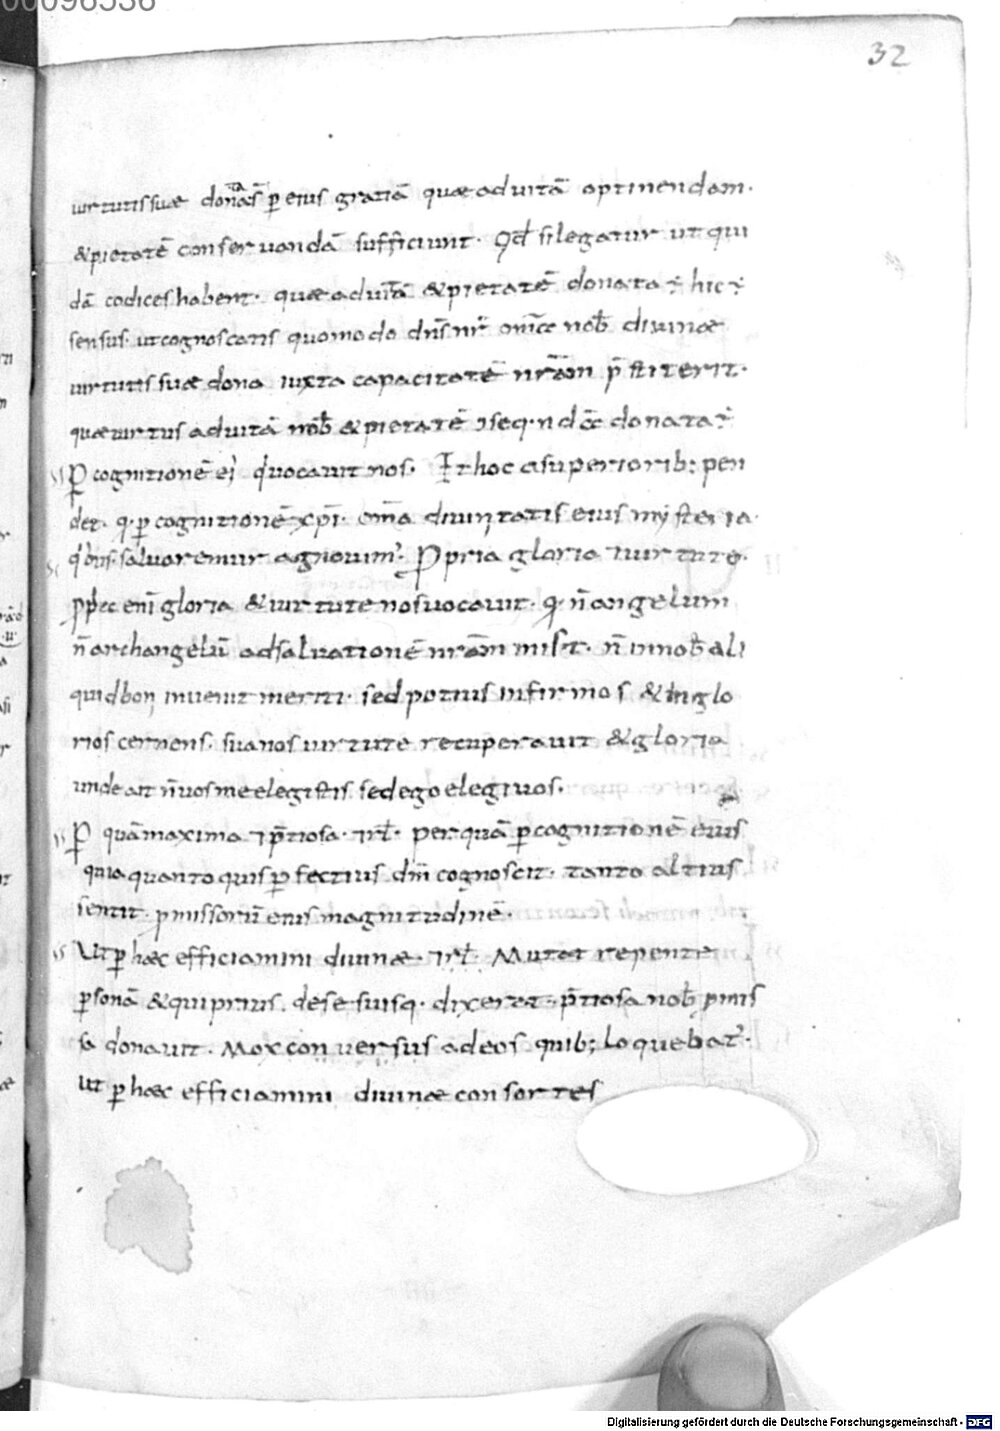 00096536
32
uirtutis suae donatas ꝑ eius gratiā quae ad uitā optinendam·
&pietatē conseruandā sufficiunt· Qd̄ si legatur ut qui
dā codices habent· quae ad uitā &pietatē donata ÷ hic ÷
sensus· ut cognoscatis quomodo dn̄s nr̄ om̄ia nob̄ diuinae
uirtutis suae dona iuxta capacitatē nr̄am p̄stiterit·
quae uirtus ad uitā nob̄ &pietatē donata ÷
P̄ cognitionē ei' q' uocauit nos· Et hoc a superiorib; pen
det· q· ꝑ cognitionē xp̄i· om̄a diuinitatis eius mysteria·
q'bus saluaremur agnouim'· Propria gloria ⁊ uirtute·
ppter eni gloria &uirtute nos uocauit· q· n̄ angelum
n̄ archangelū ad saluationē nr̄am misit· n̄ in nob̄ ali
quid boni inuenit meriti· sed potius infirmos &inglo
rios cernens· sua nos uirtute recuperauit &gloria
unde ait n̄ uos me elegistis sed ego elegi uos·
P̄ quā maxima ⁊ p̄tiosa· ⁊rł· per quā ꝑ cognitionē eius
quia quanto quis ꝑfectius dm̄ cognoscit· tanto altius
sentit· ꝓmissorū eius magnitudinē·
Ut ꝑ haec efficiamini diuinae· ⁊rł· Mutat repente
ꝑsonā &qui prius· de se suisq· dixerat· p̄tiosa nob̄ ꝓmis
sa donauit· Mox conuersus ad eos quib; loquebat'·
Ut ꝑ haec efficiamini diuinae consortes
Digitalisierung gefördert durch die Deutsche Forschungsgemeinschaft - DFG